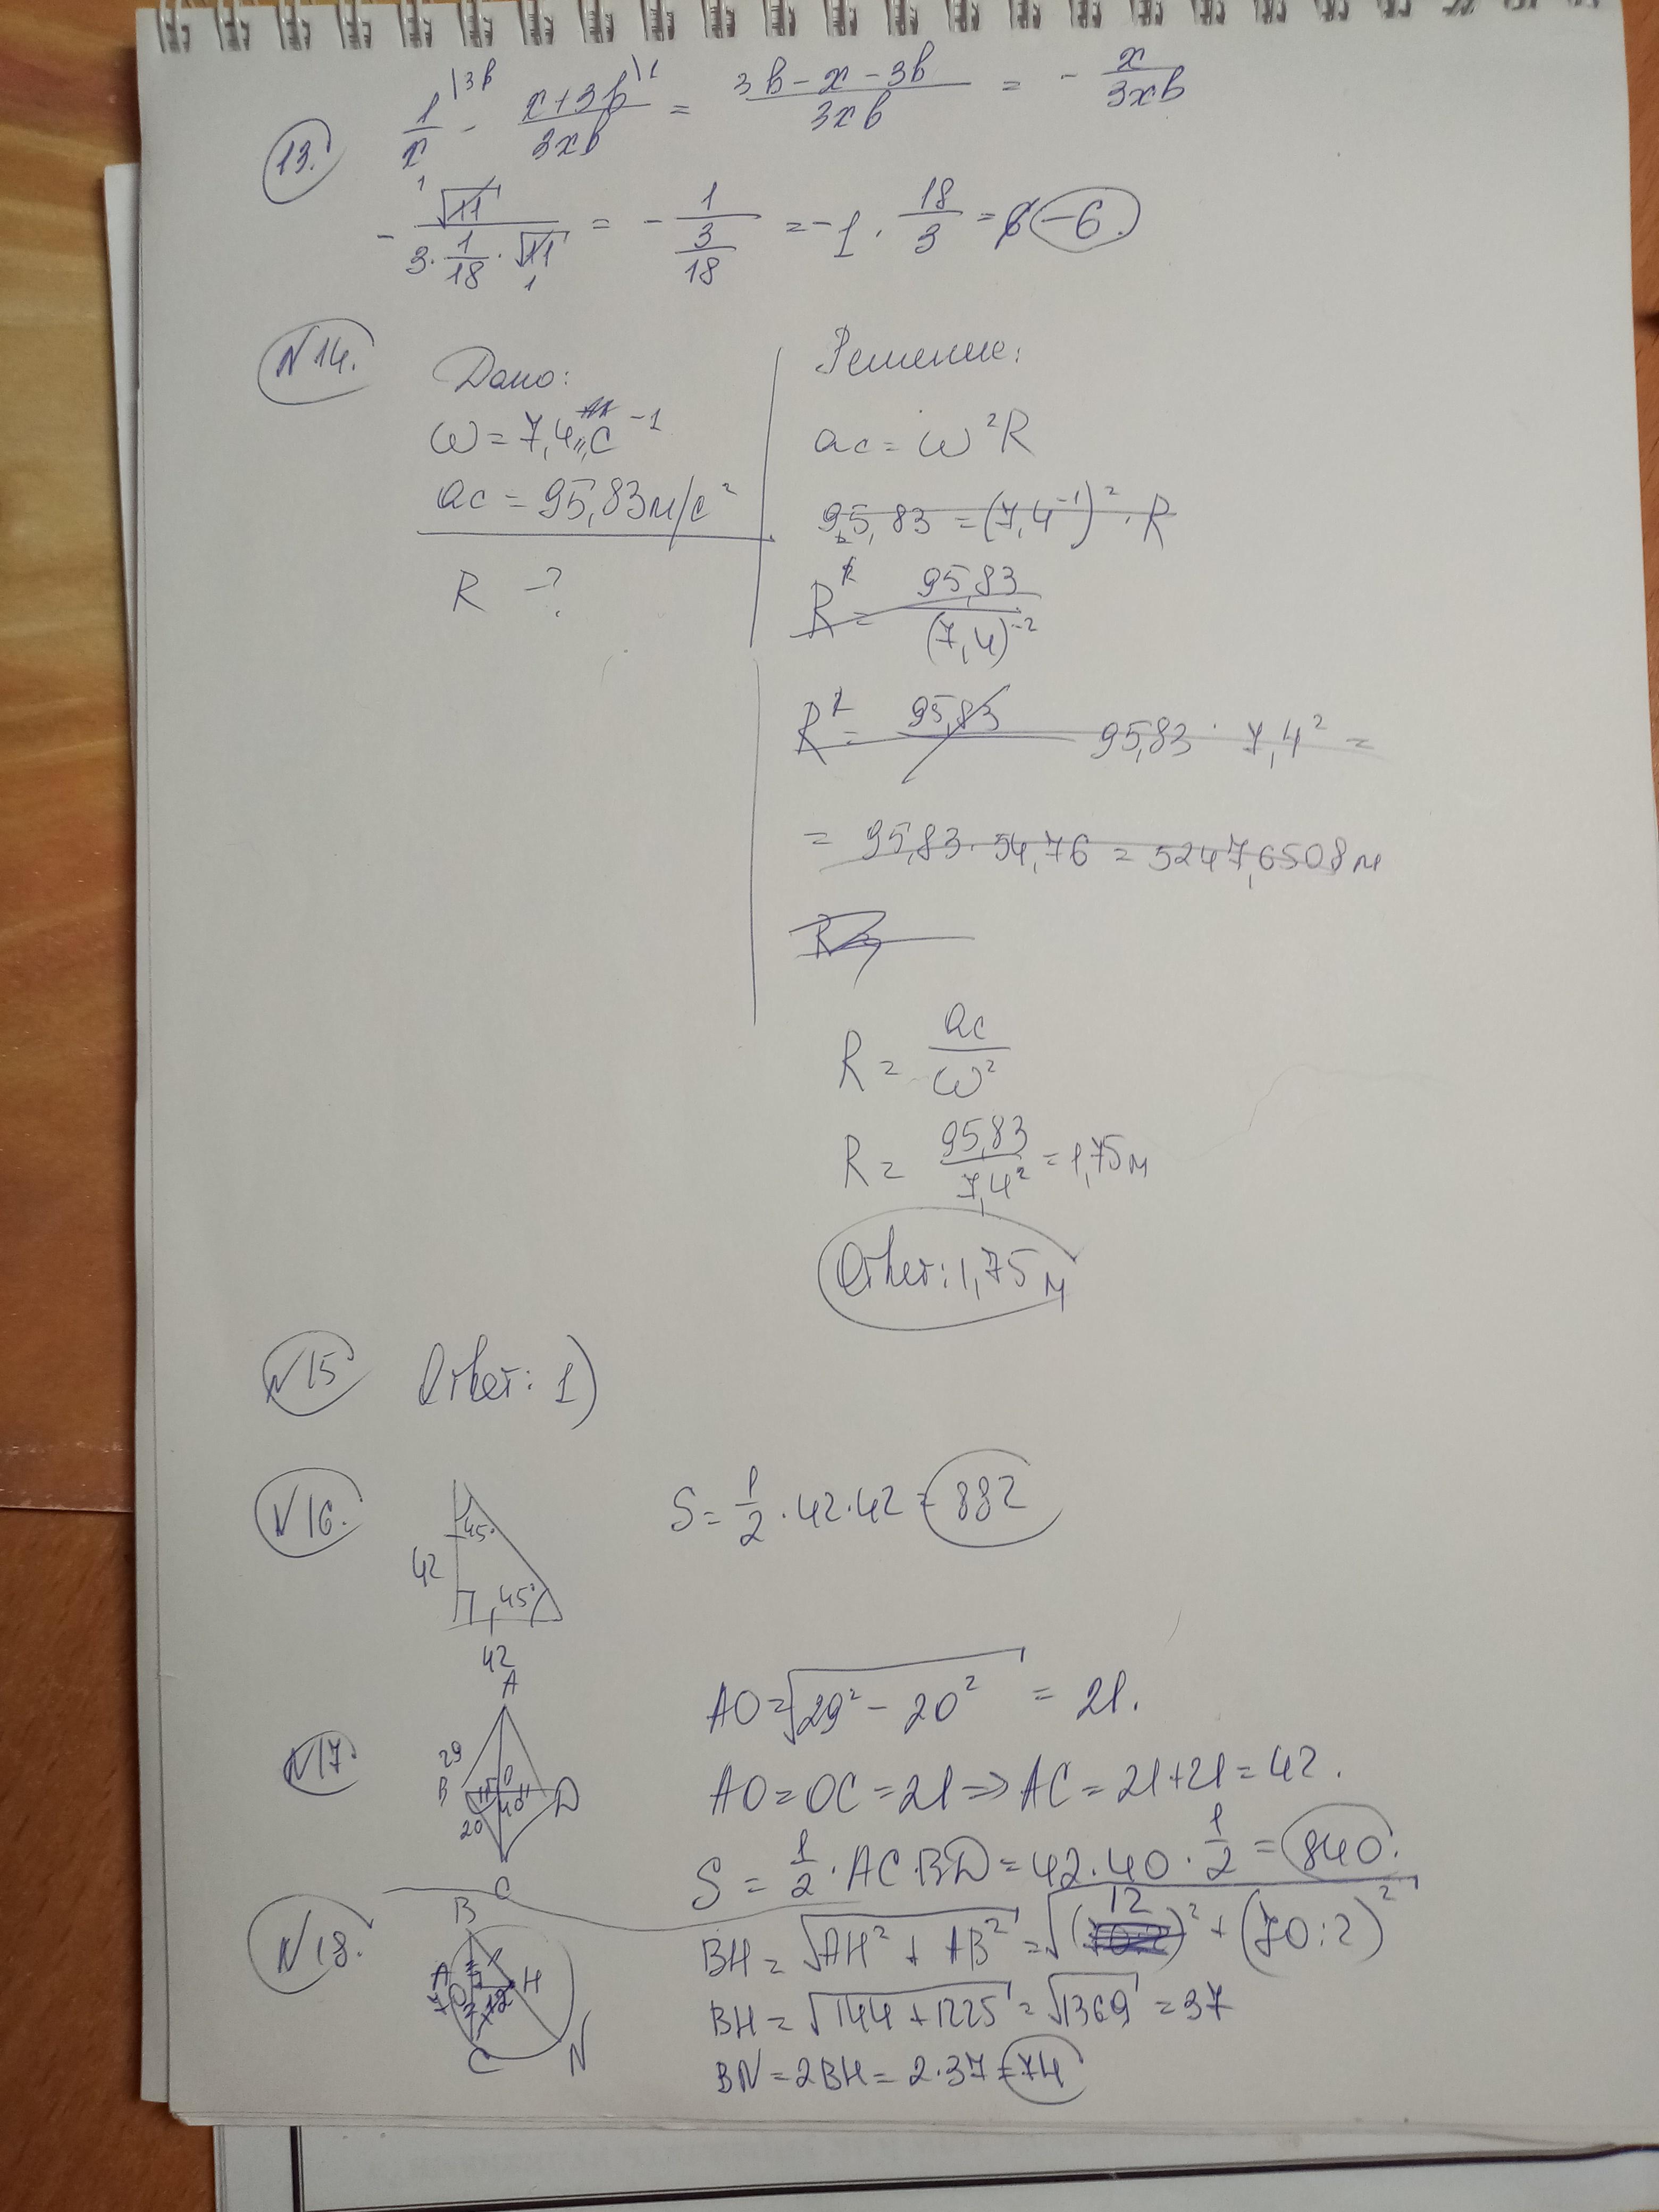 13. 1/x \3в - x+3в/3xв \1 = 3в-x-3в/3xв = - x/3xв
- √11/3·1/18·√11 = - 1/3/18 = -1 · 18/3 = -6.
N14.
Дано:
ω = 7,4 с⁻¹
aс = 95,83 м/с²
R - ?
Решение:
aс = ω²R
95,83 = (7,4⁻¹)² · R
R = 95,83/(7,4)⁻²
R = 95,83 95,83 · 7,4² =
= 95,83 · 54,76 = 5247,6508 м
R =
R = aс/ω²
R = 95,83/7,4² = 1,75 м
Ответ: 1,75 м
N15 Ответ: 1)
N16.
45°
42
45°
42
S = 1/2 · 42 · 42 = 882
N17.
A
29
B
O
40
D
20
C
AO = √29² - 20² = 21.
AO = OC = 21 ⇒ AC = 21 + 21 = 42.
S = 1/2 · AC · BD = 42 · 40 · 1/2 = 840.
N18.
B
A
H
70
12
C
N
BH = √AH² + AB² = √(12)² + (70:2)²
BH = √144 + 1225 = √1369 = 37
BN = 2BH = 2 · 37 = 74